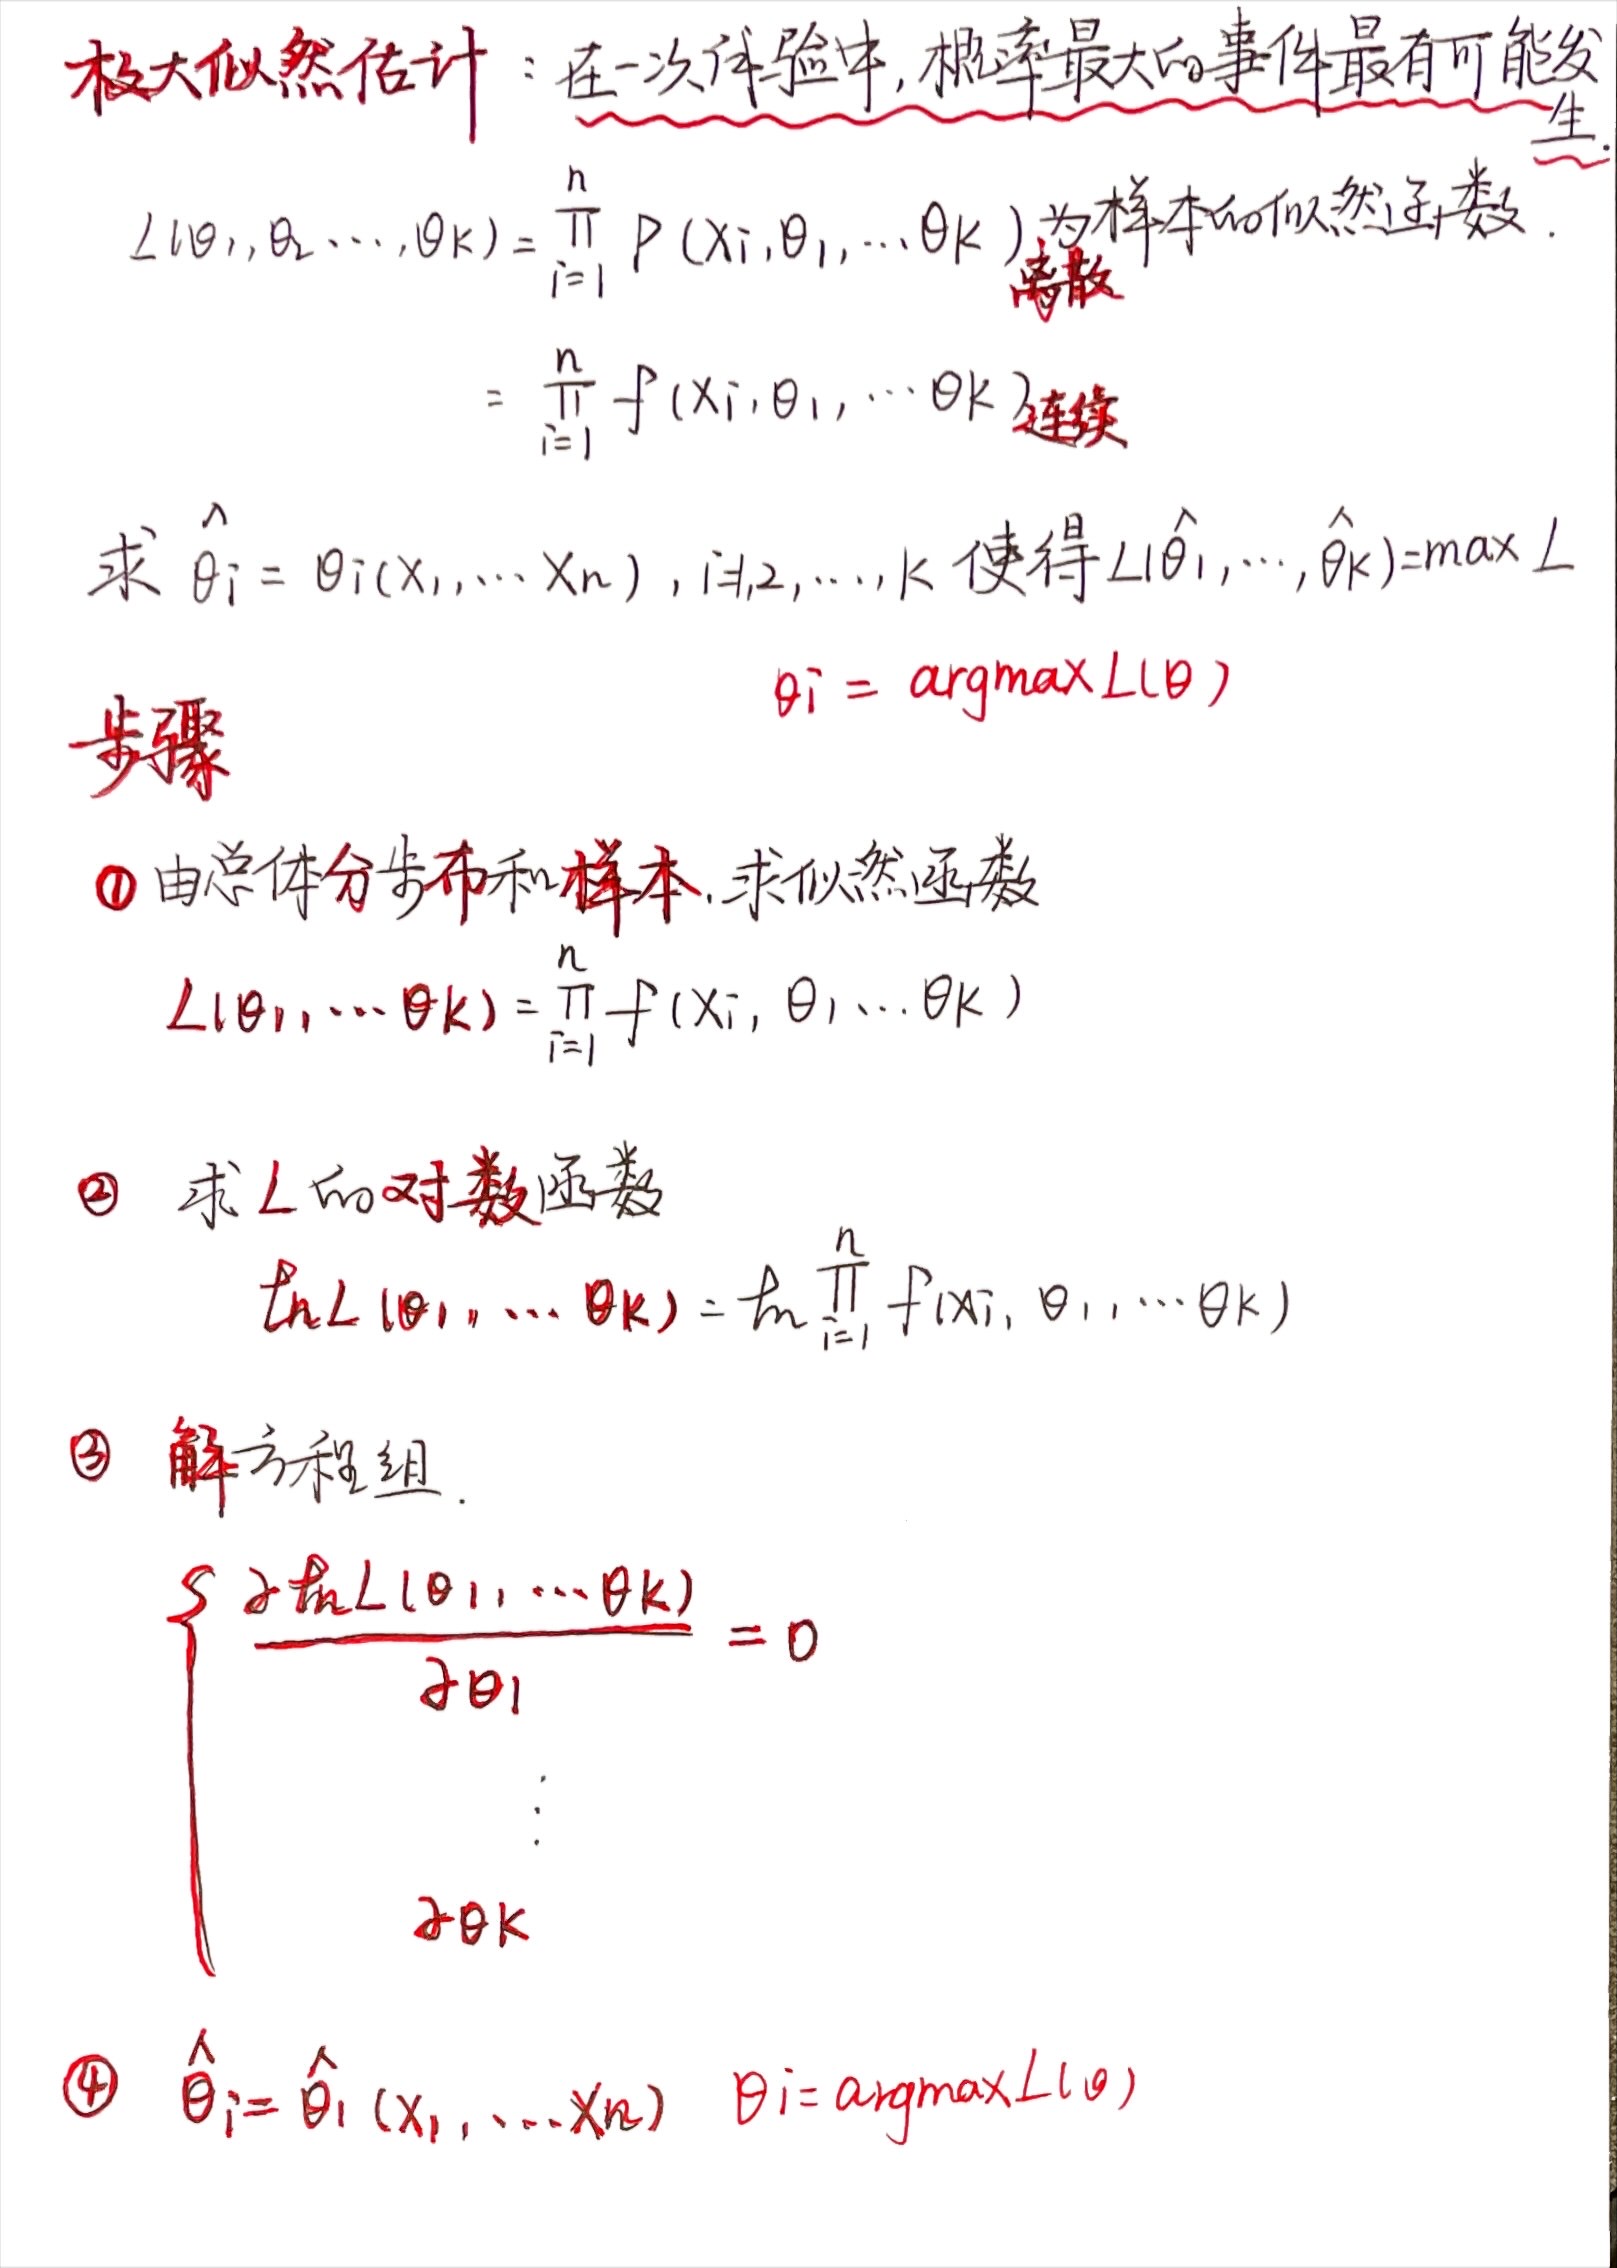 极大似然估计：在一次体验中,概率最大的事件最有可能发
生.
L(θ1,θ2…,θK)=∏_{i=1}^{n} P(Xi,θ1,…θK) 为样本的似然函数.
离散
=∏_{i=1}^{n} f(Xi,θ1,…θK) 连续
求 θ̂i=θi(X1,…Xn), i=1,2,…,K 使得L(θ̂1,…,θ̂K)=max L
θi = argmax L(θ)
步骤
① 由总体分步布和样本.求似然函数
L(θ1,,…θK)=∏_{i=1}^{n} f(Xi, θ1…θK)
② 求L的对数函数
ln L(θ1,,…θK)=ln ∏_{i=1}^{n} f(Xi, θ1,…θK)
③ 解方程组.
{ ∂ln L(θ1,,…θK)
= 0
∂θ1
⋮
∂θK
④ θ̂i=θ̂1(X1,,…Xn) θi=argmax L(θ)